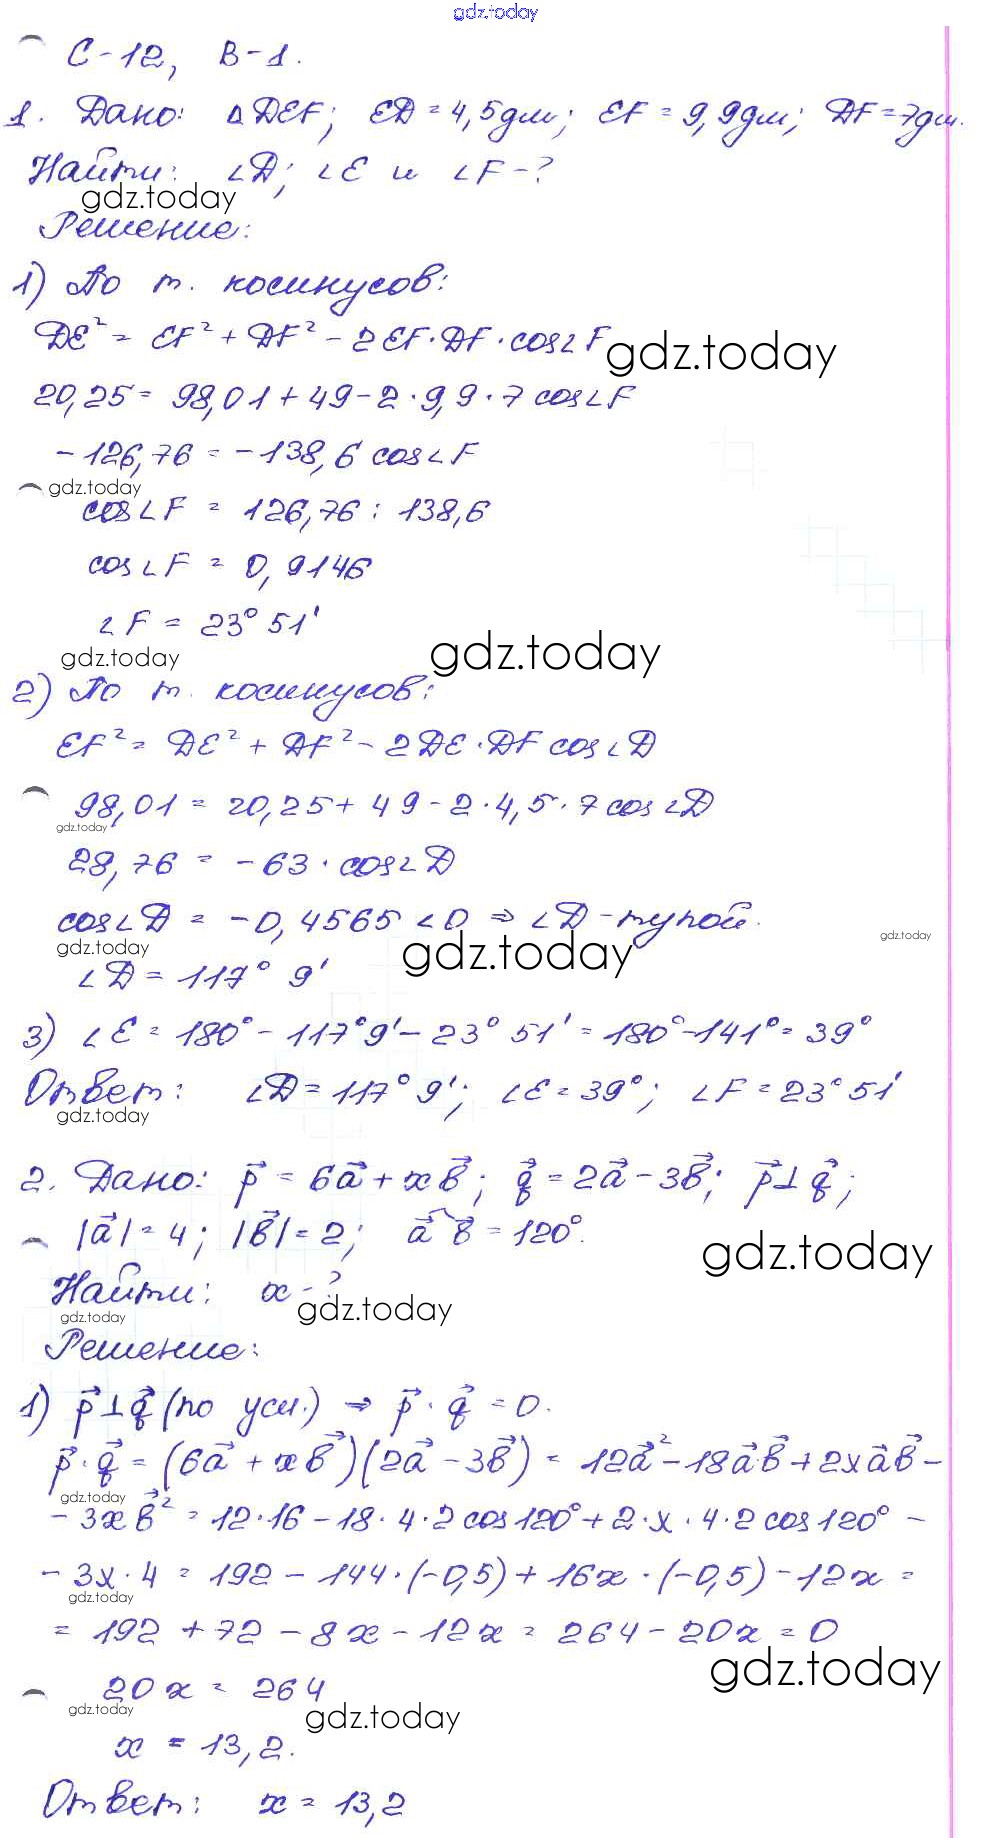 gdz.today
С-12, В-1.
1. Дано: △DEF; ED = 4,5дм; EF = 9,9дм; DF = 7дм.
Найти: ∠D; ∠E и ∠F-?
gdz.today
Решение:
1) По т. косинусов:
DE² = EF² + DF² - 2EF·DF·cos∠F
gdz.today
20,25 = 98,01 + 49 - 2·9,9·7 cos∠F
-126,76 = -138,6 cos∠F
gdz.today
cos∠F = 126,76 : 138,6
cos∠F = 0,9146
∠F = 23° 51'
gdz.today gdz.today
2) По т. косинусов:
EF² = DE² + DF² - 2DE·DF cos∠D
98,01 = 20,25 + 49 - 2·4,5·7 cos∠D
gdz.today
28,76 = -63·cos∠D
cos∠D = -0,4565 ∠0 ⇒ ∠D - тупой.
gdz.today gdz.today gdz.today
∠D = 117° 9'
3) ∠E = 180° - 117°9' - 23° 51' = 180° - 141° = 39°
Ответ: ∠D = 117° 9'; ∠E = 39°; ∠F = 23° 51'
gdz.today
2. Дано: p⃗ = 6a⃗ + xb⃗; q⃗ = 2a⃗ - 3b⃗; p⃗⊥q⃗;
|a⃗| = 4; |b⃗| = 2; a⃗ b⃗ = 120°.
gdz.today
Найти: x-?
gdz.today gdz.today
Решение:
1) p⃗⊥q⃗ (по усл.) ⇒ p⃗·q⃗ = 0.
p⃗·q⃗ = (6a⃗ + xb⃗)(2a⃗ - 3b⃗) = 12a⃗² - 18a⃗·b⃗ + 2xa⃗b⃗ -
gdz.today
- 3xb⃗² = 12·16 - 18·4·2 cos120° + 2·x·4·2 cos120° -
- 3x·4 = 192 - 144·(-0,5) + 16x·(-0,5) - 12x =
gdz.today
= 192 + 72 - 8x - 12x = 264 - 20x = 0
gdz.today
20x = 264
gdz.today gdz.today
x = 13,2.
Ответ: x = 13,2